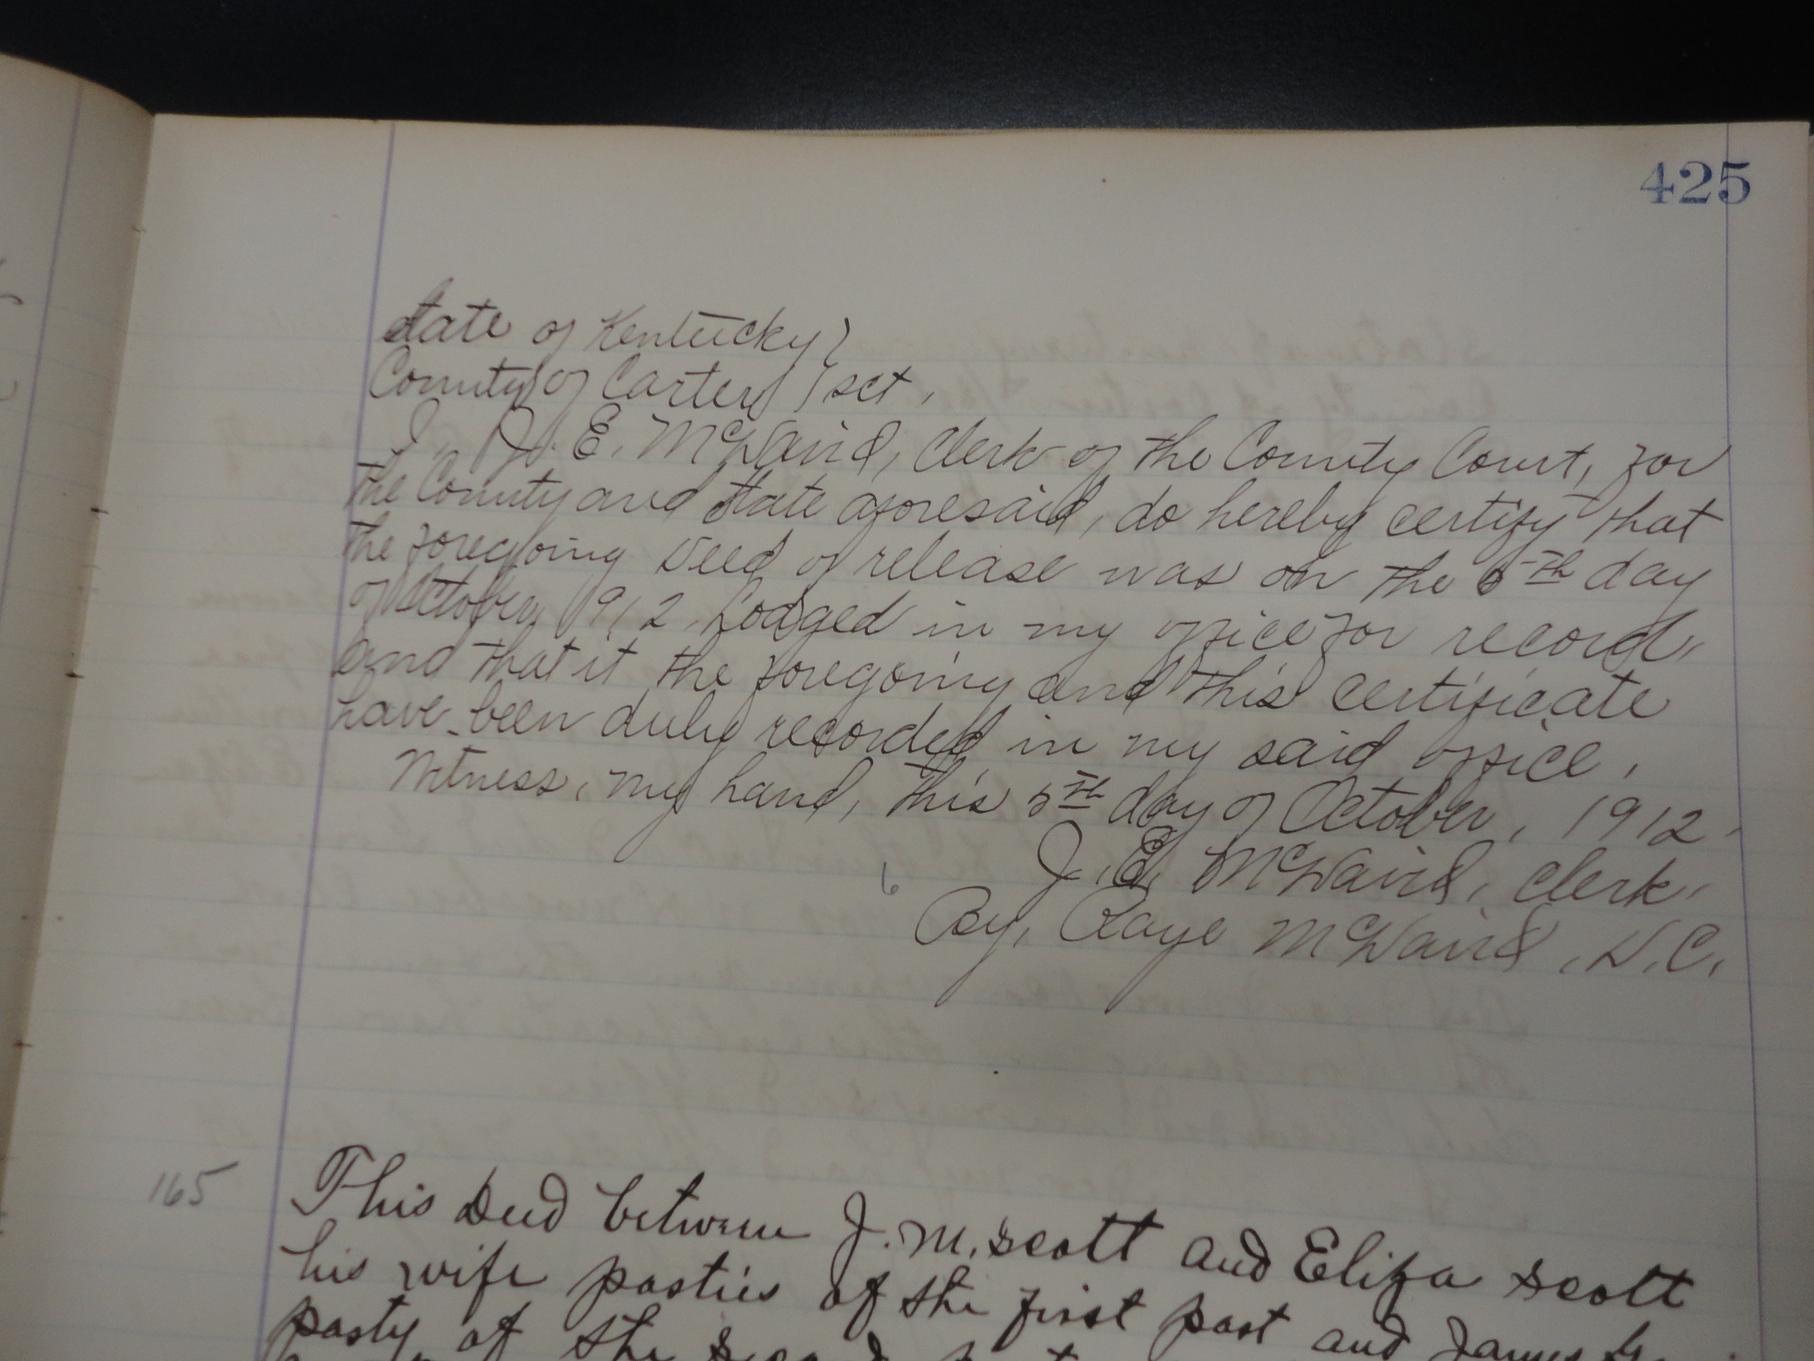 425
State of Kentucky }
County of Carter } sct.
I, J. E. McDavid, Clerk of the County Court, for
the County and State aforesaid, do hereby certify that
the foregoing Deed of release was on the 5th day
of October 1912, Lodged in my office for record,
and that it the foregoing and this certificate
have been duly recorded in my said office.
Witness, my hand, this 5th day of October, 1912.
J. E. McDavid, Clerk,
By, Raye McDavid, D.C.
165
This Deed between J. M. Scott and Eliza Scott
his wife parties of the first part and James
party of the